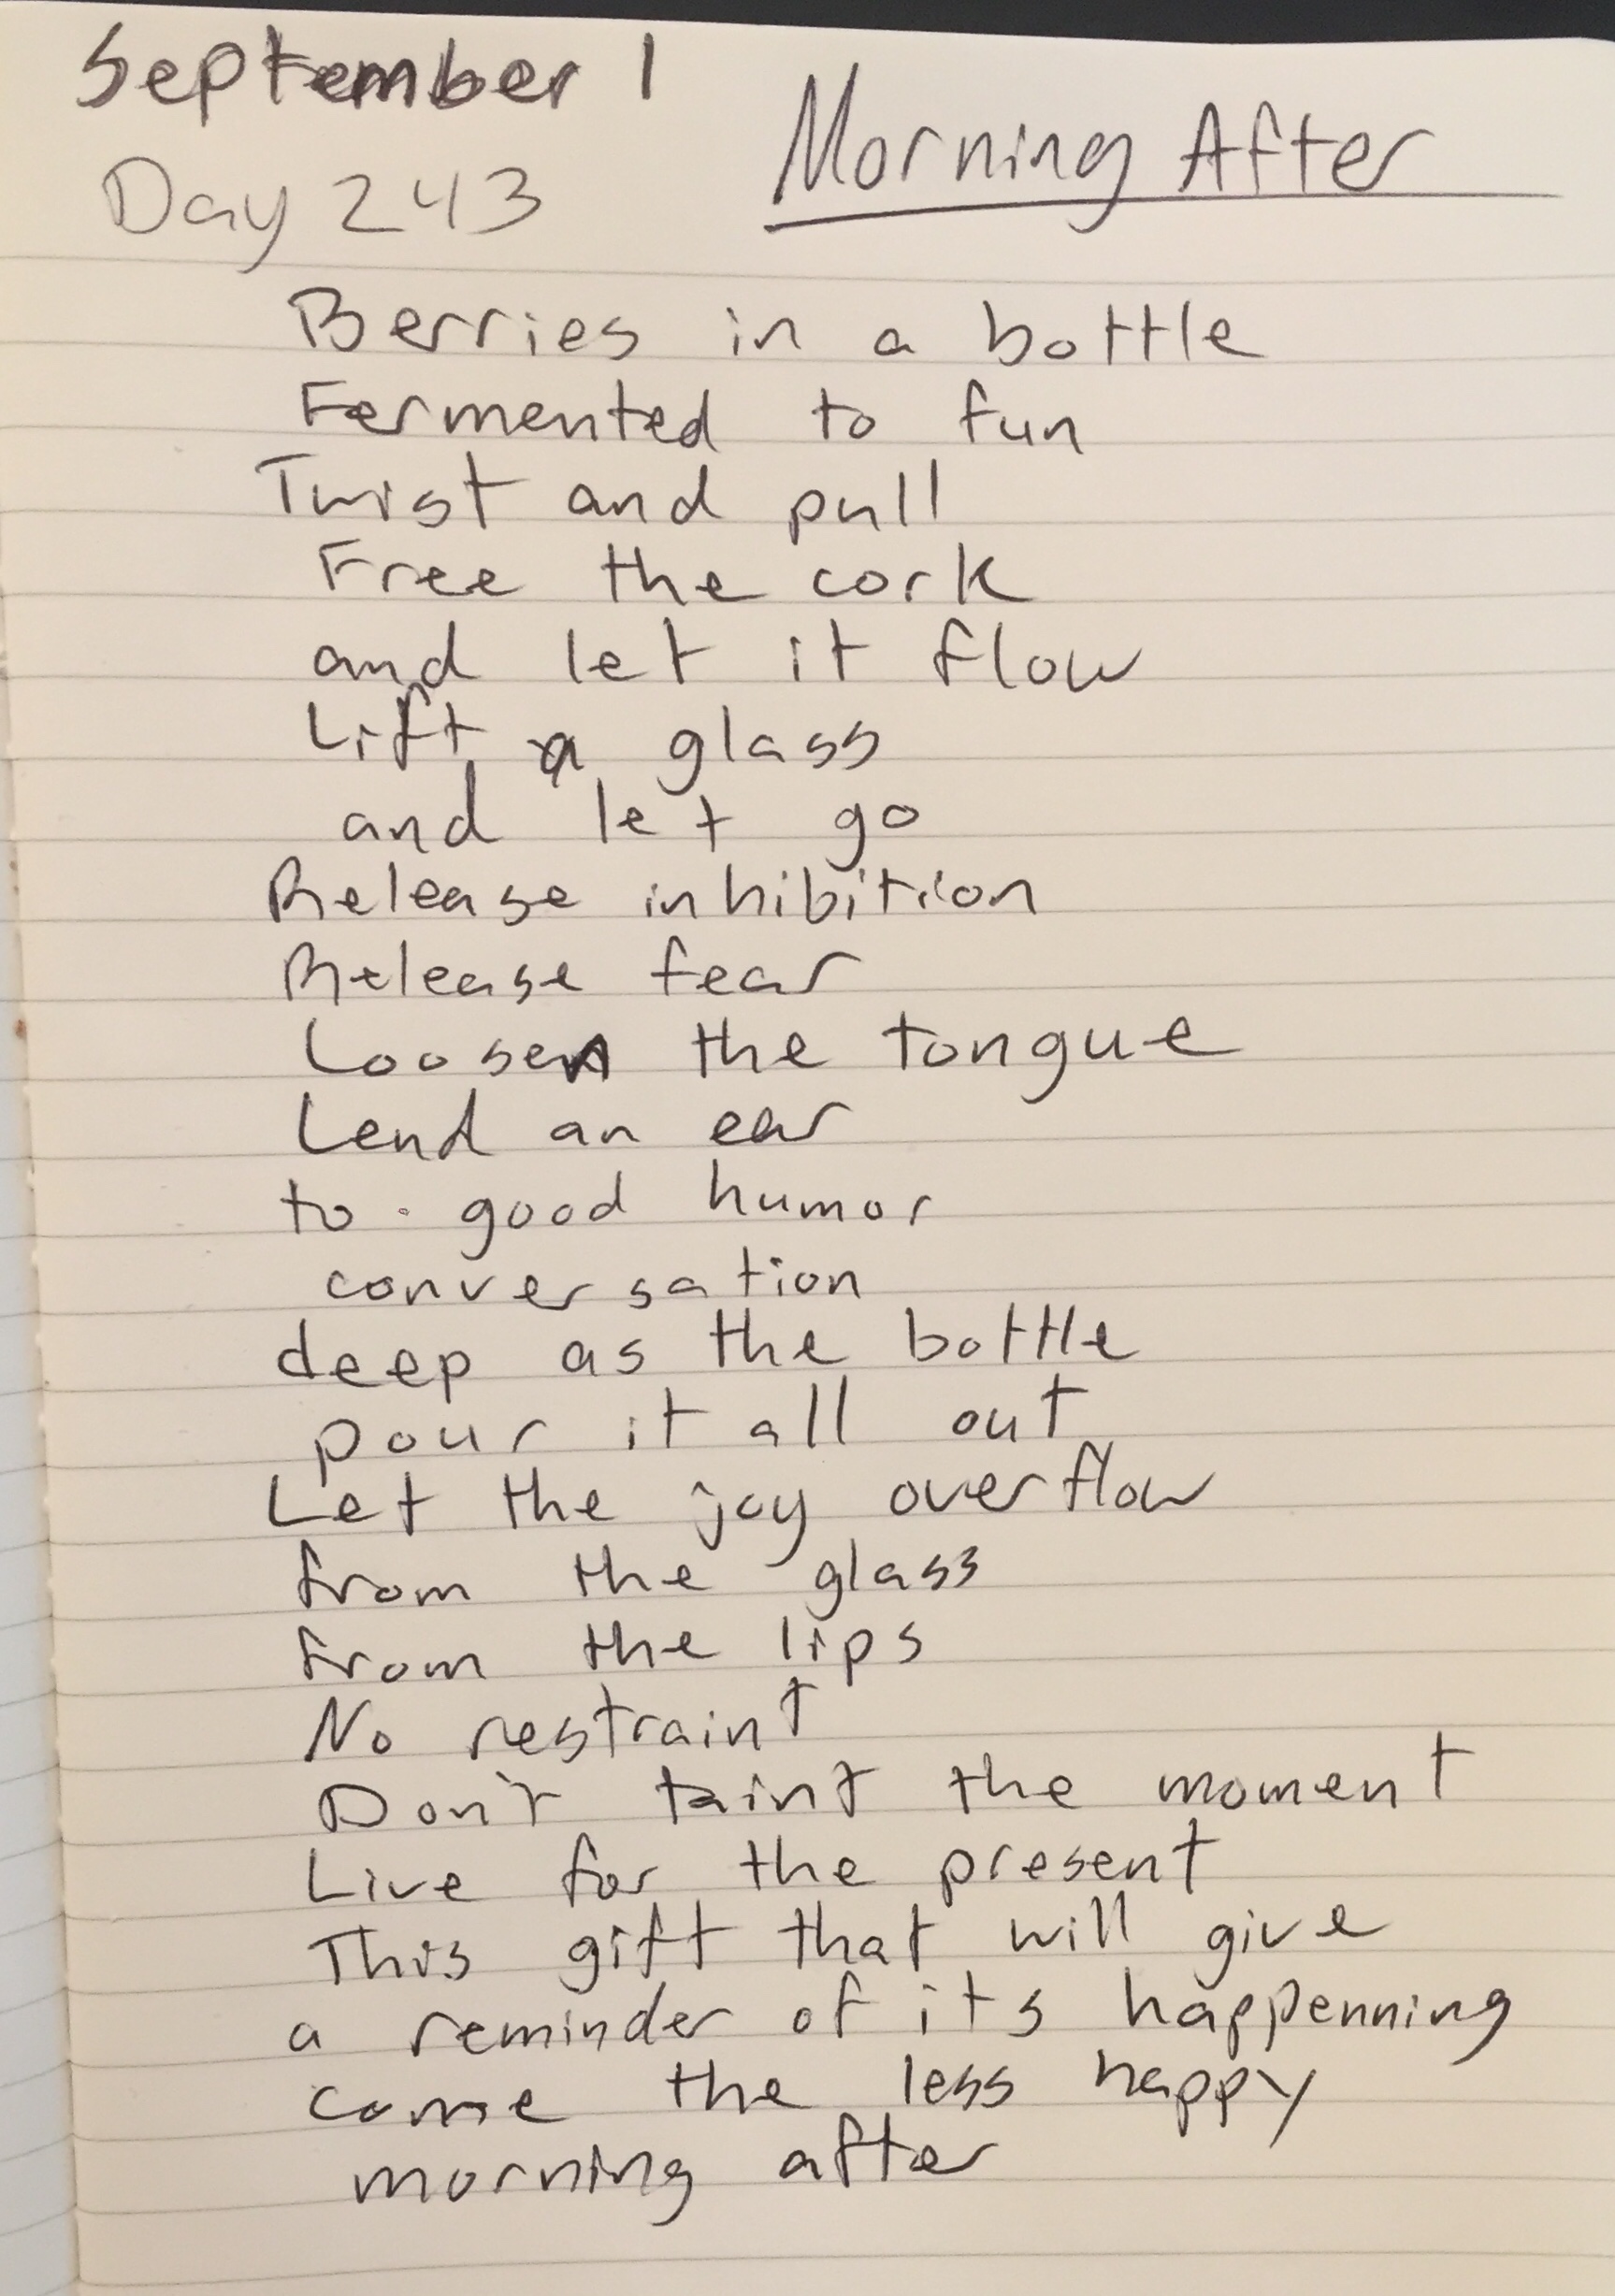 September 1
Day 243
Morning After
Berries in a bottle
Fermented to fun
Twist and pull
Free the cork
and let it flow
Lift a glass
and let go
Release inhibition
Release fear
Loosen the tongue
Lend an ear
to good humor
conversation
deep as the bottle
pour it all out
Let the joy overflow
from the glass
from the lips
No restraint
Don't taint the moment
Live for the present
This gift that will give
a reminder of its happenning
come the less happy
morning after